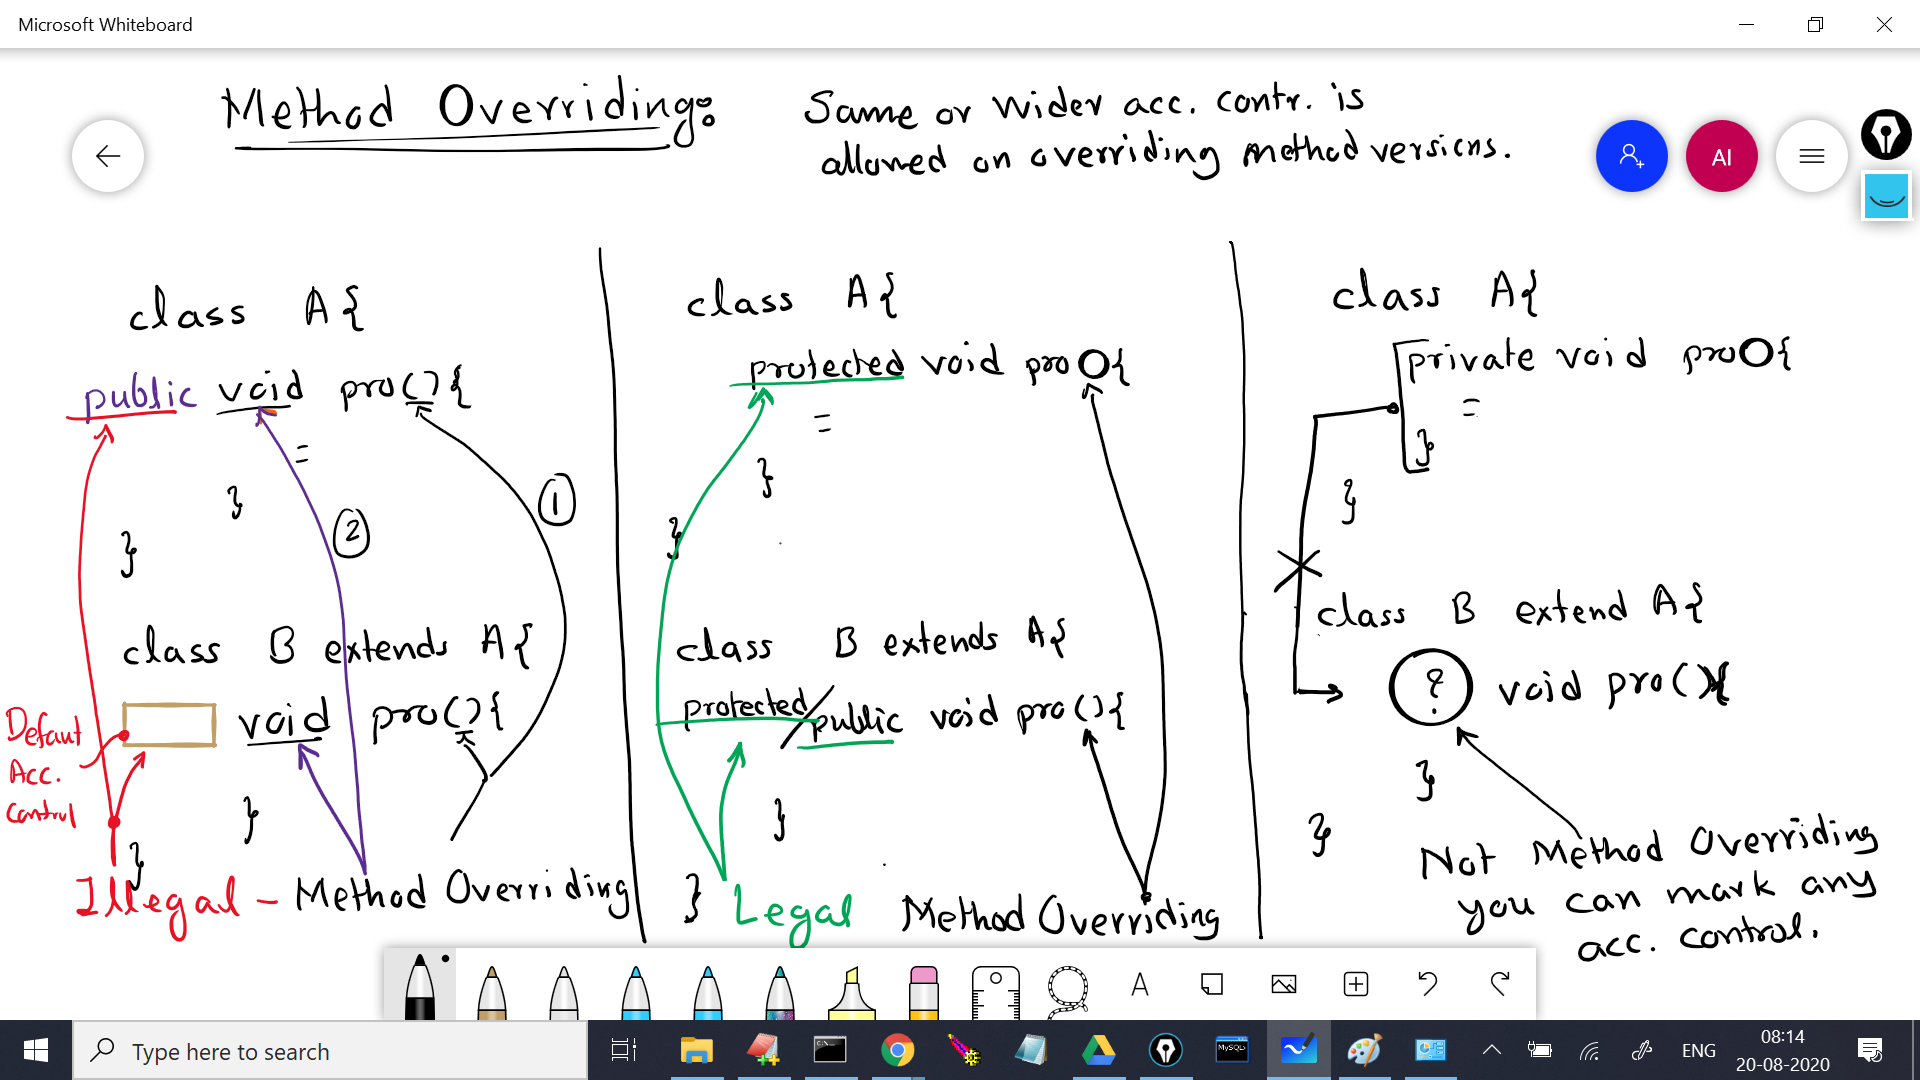 Microsoft Whiteboard
Method Overriding:
Same or wider acc. contr. is
allowed on overriding method versions.
AI
class A{
public void pro(){
=
}
}
①
②
class B extends A{
void pro(){
}
}
Defaut
Acc.
Control
Illegal - Method Overriding
class A{
protected void pro(){
=
}
}
class B extends A{
protected/public void pro(){
}
}
Legal Method Overriding
class A{
private void pro(){
=
}
}
class B extend A{
? void pro(){
}
}
Not Method Overriding
you can mark any
acc. control.
A
Type here to search
C:\
MySQL
ENG
08:14
20-08-2020